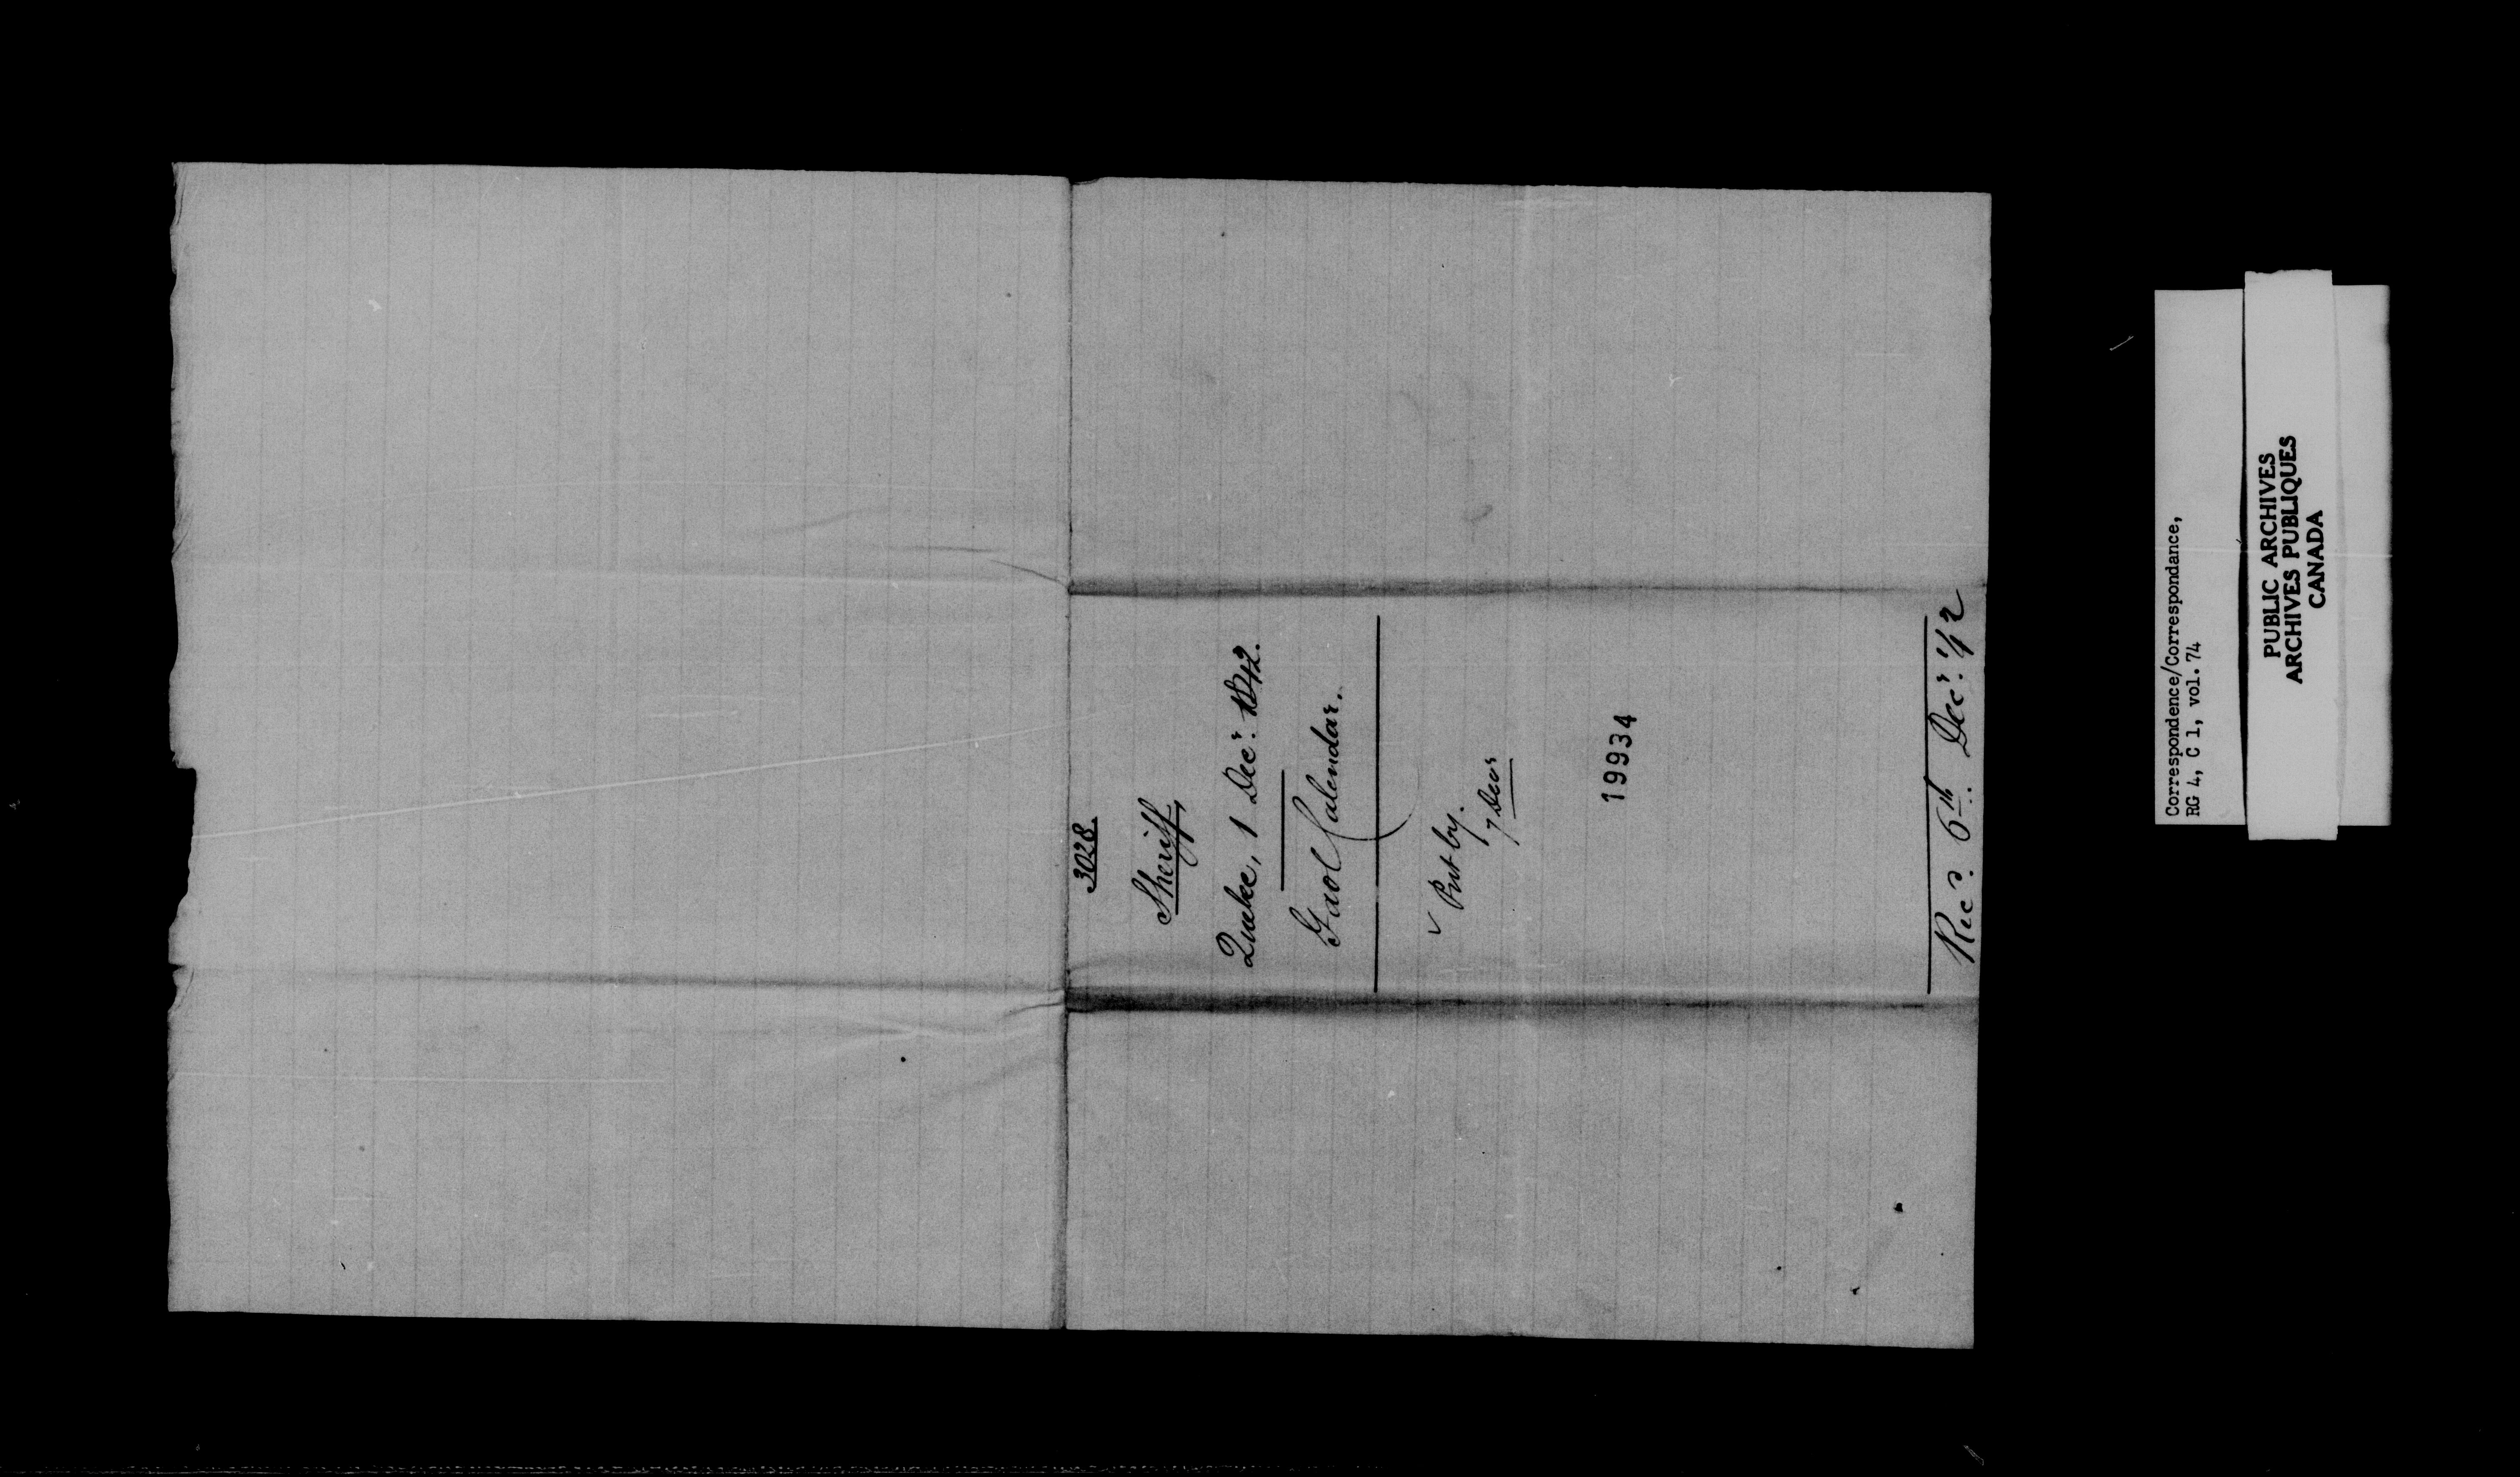 3028.
Sheriff,
Quebec, 1 Decr. 1842.
Gaol Calendar.
✓ Put by.
7 Decr
19934
Recd. 6th. Decr. 1/42
Correspondence/Correspondance,
RG 4, C 1, vol. 74
PUBLIC ARCHIVES
ARCHIVES PUBLIQUES
CANADA